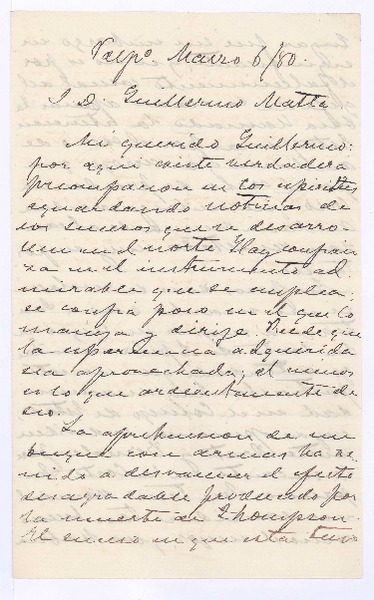 Valpº Marzo 6/80.
S. D. Guillermo Matta
Mi querido Guillermo:
por aquí existe verdadera
preocupacion en los espíritus
aguardando noticias de
los sucesos que se desarro-
llan en el norte. Hay confian
za en el instrumento ad
mirable que se emplea;
se confia poco en el que lo
maneja y dirije. Puede que
la esperiencia adquirida
sea aprovechada; al menos
es lo que ardientemente de
seo.
La aprehension de un
buque con armas ha ve
nido a desvanecer el efecto
desagradable producido por
la muerte de Thompson.
El suceso en que esta tuvo